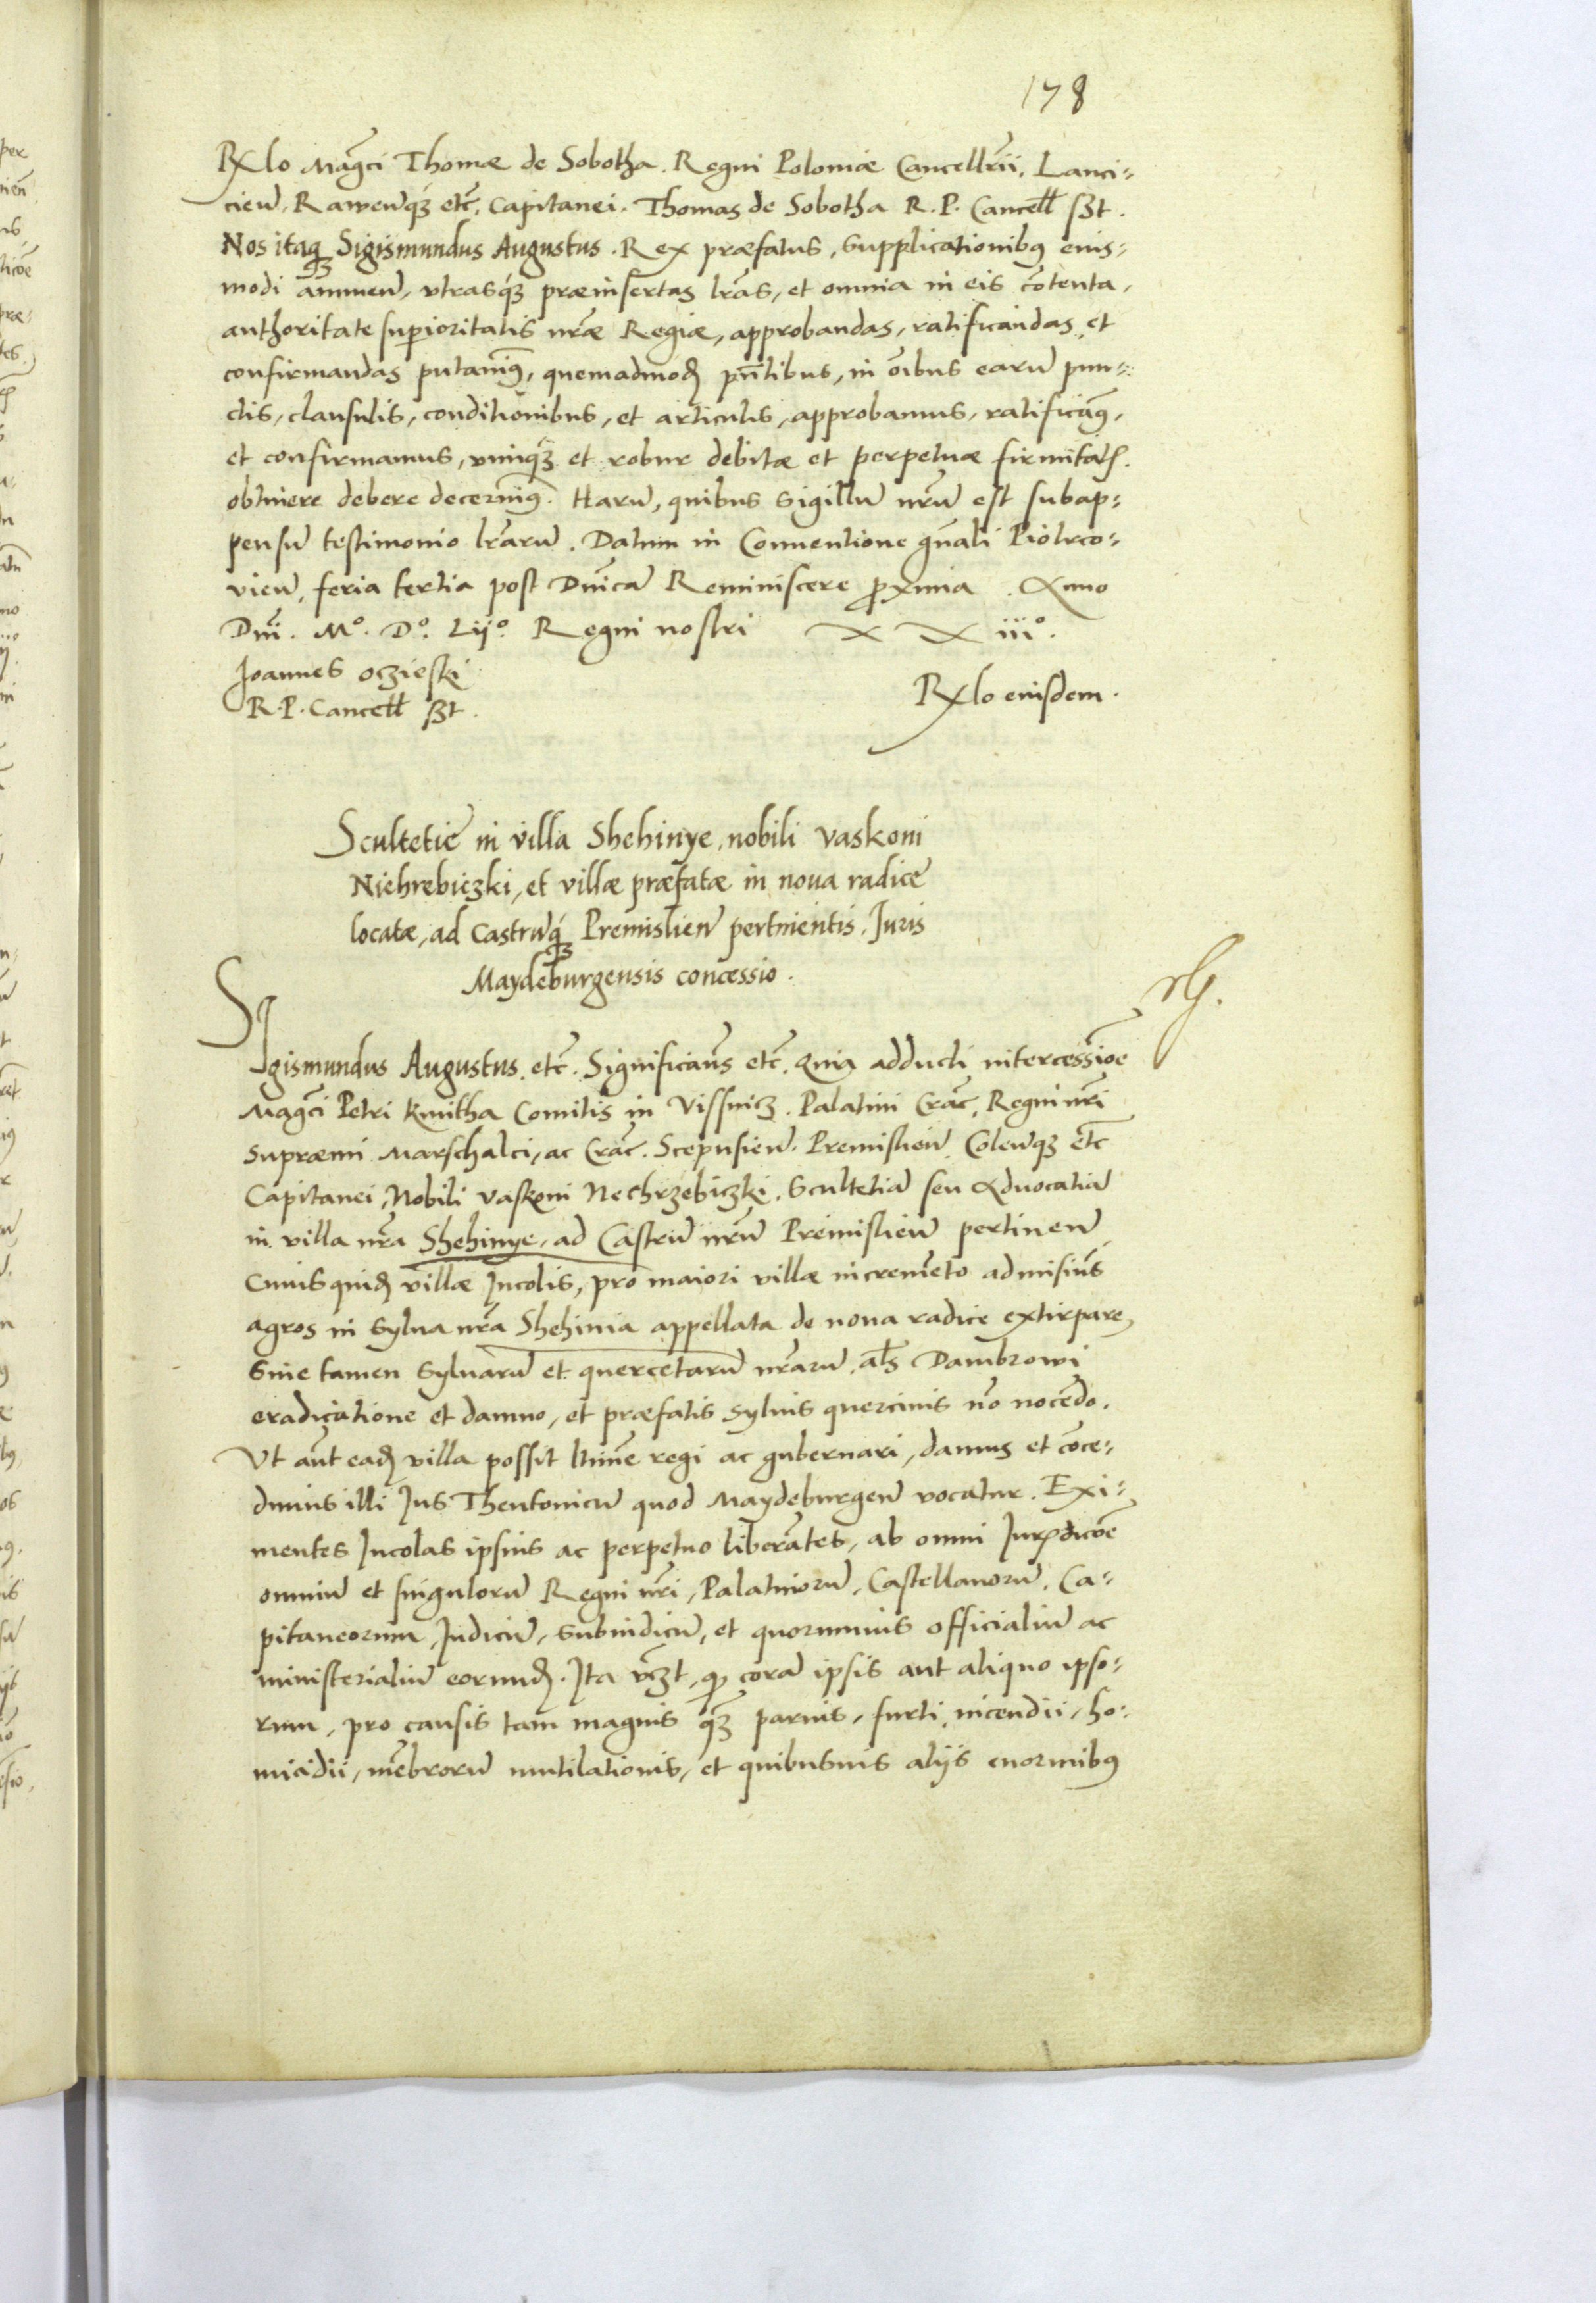 178
Rlo Magci Thomæ de Sobotha. Regni Poloniæ Cancellrii, Lanci-
cien, Rawenqz etc, Capitanei. Thomas de Sobotha R. P. Cancell sszt.
Nos itaqz Sigismundus Augustus. Rex præfatus, Supplicationibus eius-
modi annuen, vtrasqz præinsertas lras, et omnia in eis cōtenta,
authoritate superioritatis nræ Regiæ, approbandas, ratificandas et
confirmandas putauimus, quemadmod pntibus, in oibus earū pun-
ctis, clausulis, conditionibus, et articulis, approbamus, ratificamus,
et confirmamus, vimqz et robur debitæ et perpetuæ firmitatis.
obtinere debere decernimus. Harū, quibus Sigillū nrū est subap-
pensū testimonio lrarū. Datum in Conuentione gnali Piotrco-
vien, feria tertia post Dnicā Reminiscere proxima. Anno
Dni. Mo. Do. Lijo. Regni nostri XXiiio.
Joannes Oczieski
R. P. Cancell sszt.
Rlo eiusdem.
Scultetiē in villa Shehinye, nobili Vaskoni
Niehrebiczki, et villæ præfatæ in noua radice
locatæ, ad Castrūqz Premislien pertinentis, Juris
Maydeburgensis concessio.
SIgismundus Augustus. etc. Significams etc. Quia adducti intercessioē
Magci Petri Kmitha Comitis in Vissnicz. Palatini Crac, Regni nri
Supræmi Marschalci, ac Crac. Scepusien. Premislien, Colenqz etc
Capitanei, Nobili Vaskoni Nechrzebiczki, Scultetiā seu Aduocatiā
in villa nra Shehinye, ad Castrū nrū Premislien pertinen
Cuius quid villæ Jncolis, pro maiori villæ incremēto admisius
agros in sylua nra Shehinia appellata de noua radice extirpare,
Sine tamen syluarū et quercetarū nrarū, als Dambrowi
eradicatione et damno, et præfatis syluis quercinis nō nocēdo.
Vt aut ead villa possit ltime regi ac gubernari, damus et cōce-
dimus illi Jus Theutonicū quod Maydeburgen vocatur. Exi-
mentes Jncolas ipsius ac perpetuo liberātes, ab omni Jurisdicoē
omniū et singulorū Regni nri, Palatinorū, Castellanorū, Ca-
pitaneorum, Judicū, Subiudicū, et quorumuis officialiū ac
ministerialiū eorund. Jta vczt, qd corā ipsis aut aliquo ipso-
rum, pro causis tam magnis qz paruis, furti, incendii, ho-
micidii, mēbrorū mutilationis, et quibusuis aliis enormibus